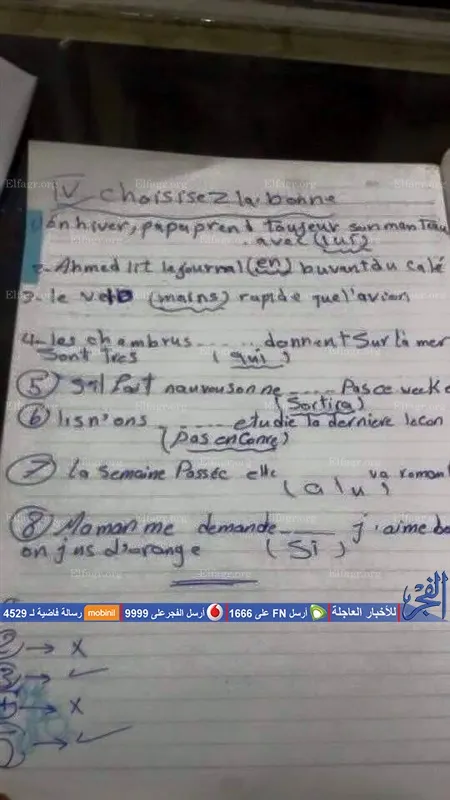 IV choisisez la bonne
1) én hiver, papa prend toujeur son manteau
avec (lui)
2- Ahmed lit le journal (en) buvant du café
3- le vélo (mains) rapide que l'avion
4- les chambrus ........ donnent Sur la mer
Sont tres (qui)
(5) s'il fait mauvais on ne ........ Pas ce week e
(Sortira)
(6) ils n'ons ........ etudie la derniere lecon
(pas enconre)
(7) la Semaine Passée elle ........ un roman
(a lu)
(8) Maman me demande ........ j'aime bo
on jus d'orange (Si)
الفجر
للأخبار العاجلة أرسل FN على 1666 أرسل الفجر على 9999 mobinil رسالة فاضية لـ 4529
→ X
→ ✓
→ X
→ ✓
Elfagr.org